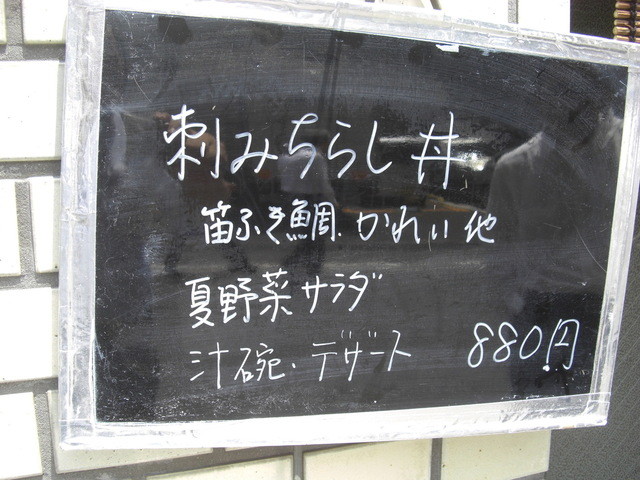 刺みちらし丼
笛ふき鯛.かれい他
夏野菜サラダ
汁碗.デザート 880円